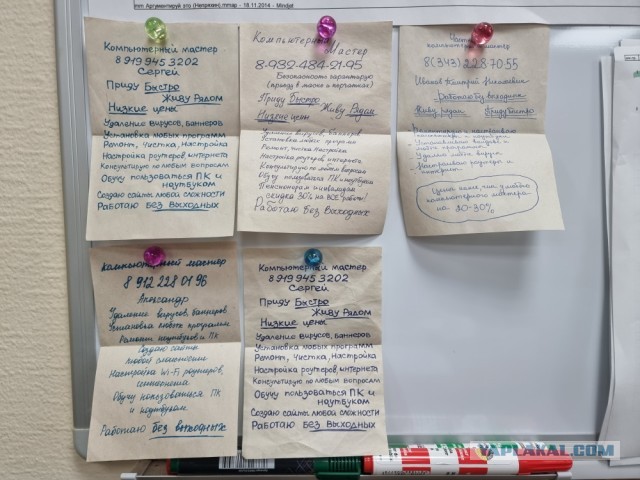 mm Аргументируй это (Напрязки).mmap - 18.11.2014 - Mindjet
Компьютерный мастер
8 919 945 3202
Сергей
Приду Быстро
Живу Рядом
Низкие цены
Удаление вирусов, баннеров
Установка любых программ
Ремонт, Чистка, Настройка
Настройка роутеров, интернета
Консультирую по любым вопросам
Обучу пользоваться ПК и
ноутбукам
Создаю сайты любой сложности
Работаю Без Выходных
Компьютерный
Мастер
8-982-484-21-95
Безопасность гарантирую
(приеду в маске и перчатках)
Приду Быстро
Живу Рядом
Низкие цены
Удаление вирусов, баннеров
Установка любых программ
Ремонт, чистка, Настройка
Настройка роутеров интернета
Консультирую по любым вопросам
Обучу пользоваться ПК и ноутбуком
Пенсионерам и инвалидам
скидка 30% на все работы!
Работаю Без Выходных
Частный
компьютерный мастер
8(343)2287055
Иванов Дмитрий Николаевич
Работаю без выходных
Живу рядом Приду быстро
Удаляю любые вирусы
Настраиваю роутеры и
интернет
Цены ниже, чем у любого
компьютерного мастера
на 20-30%
Компьютерный мастер
8 912 228 01 96
Александр
Удаление вирусов, баннеров
Установка любых программ
Ремонт ноутбуков и ПК
Создаю сайты
любой сложности
Настройка Wi-Fi роутеров,
интернета
Обучу пользоваться ПК
и ноутбуком
Работаю без выходных
Компьютерный мастер
8 919 945 3202
Сергей
Приду Быстро
Живу Рядом
Низкие цены
Удаление вирусов, баннеров
Установка любых программ
Ремонт, Чистка, Настройка
Настройка роутеров, интернета
Консультирую по любым вопросам
Обучу пользоваться ПК и
ноутбукам
Создаю сайты любой сложности
Работаю Без Выходных
YAPLAKAL.COM